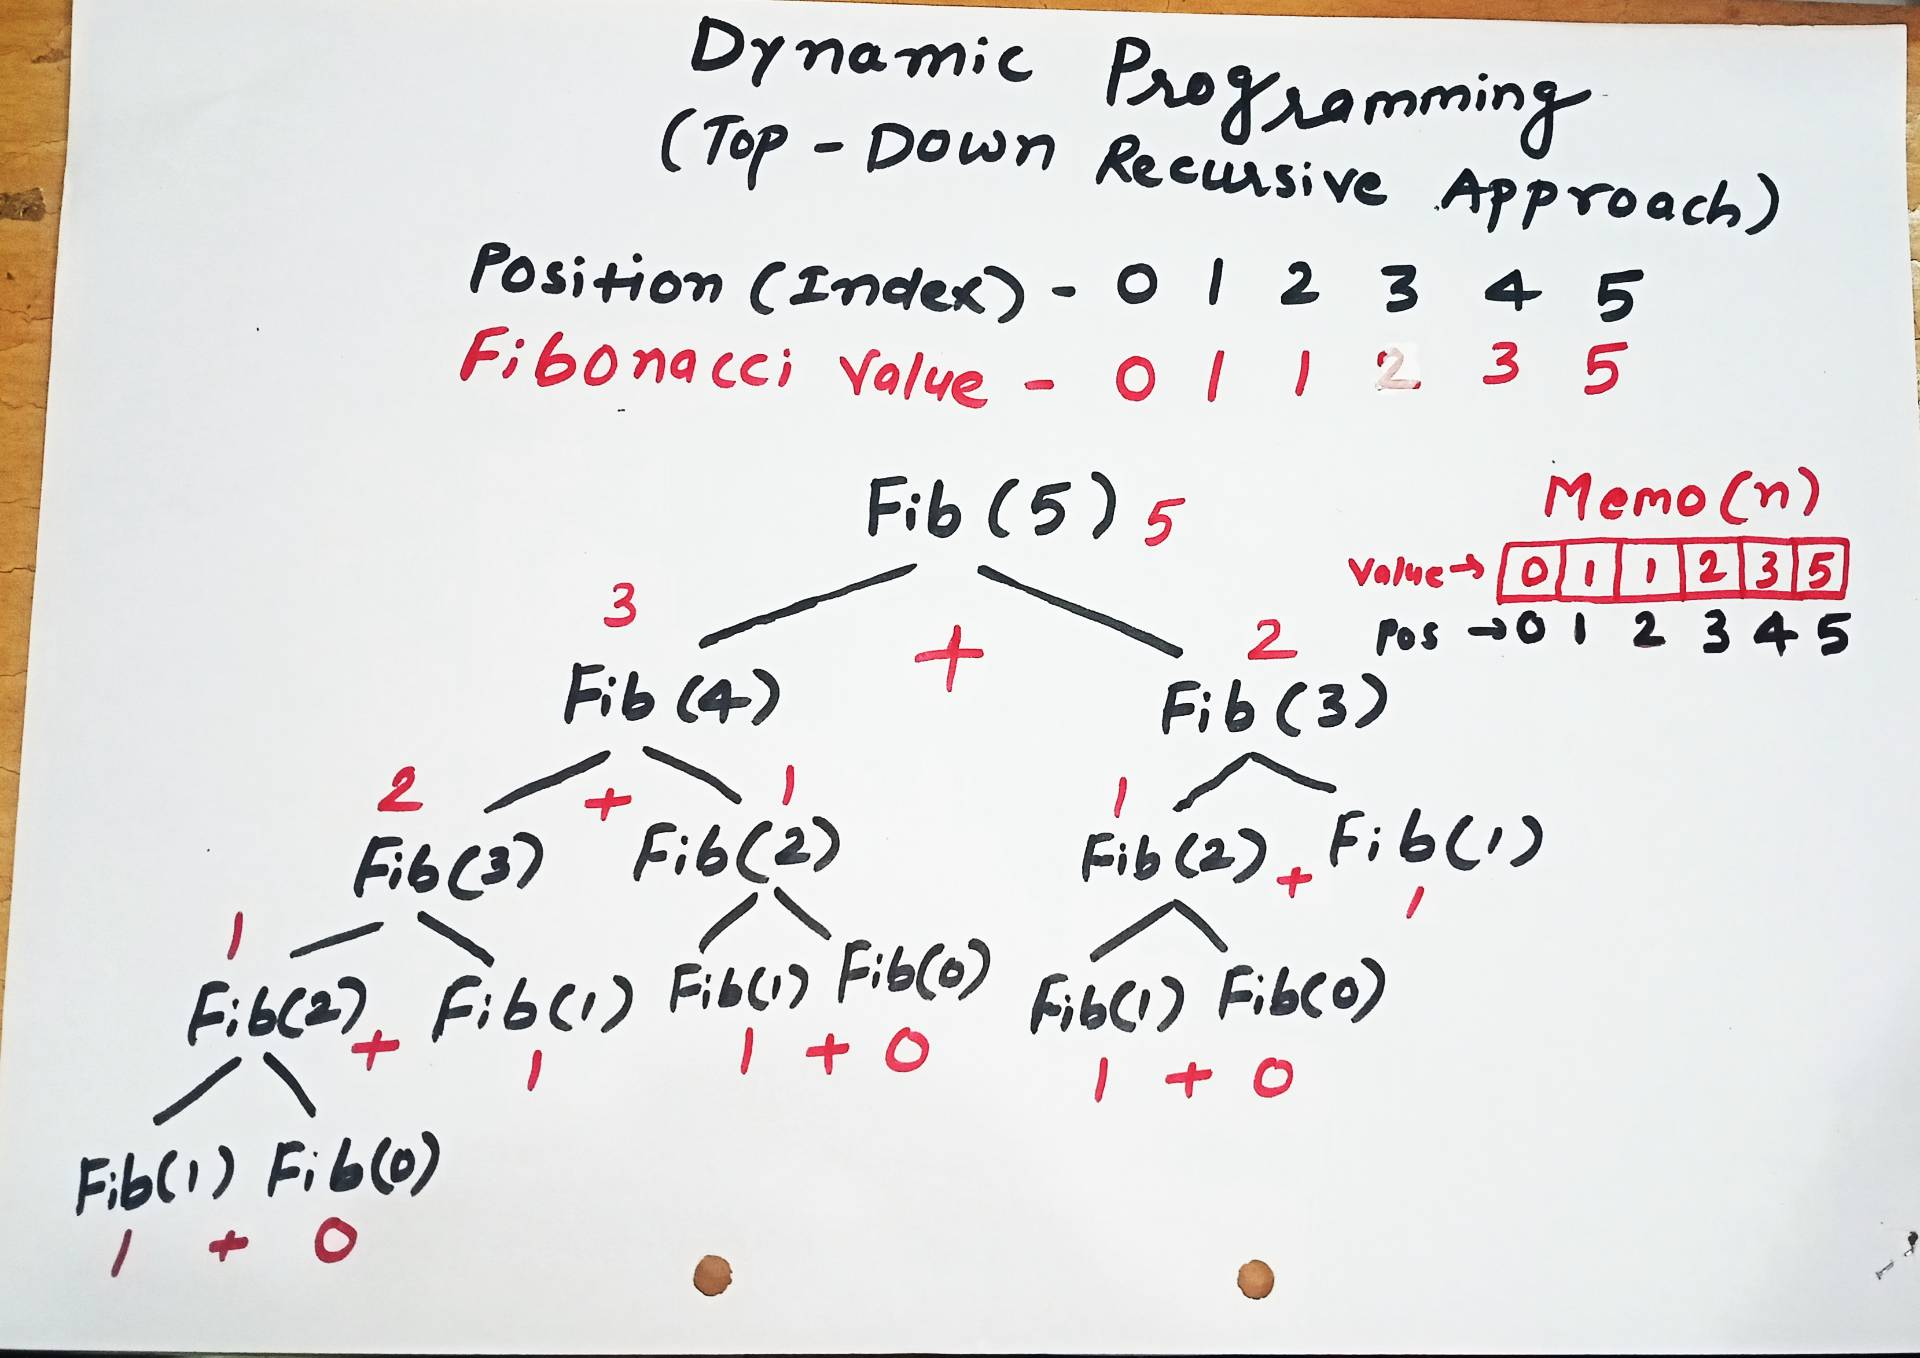 Dynamic Programming
(Top-Down Recursive Approach)
Position (Index) - 0 1 2 3 4 5
Fibonacci Value - 0 1 1 2 3 5
Fib (5) 5
Memo (n)
Value → 0 1 1 2 3 5
Pos → 0 1 2 3 4 5
3 + 2
Fib (4) Fib (3)
2 + 1 1
Fib(3) Fib(2) Fib(2) + Fib(1)
1 1
Fib(2) + Fib(1) Fib(1) Fib(0) Fib(1) Fib(0)
1 1 + 0 1 + 0
Fib(1) Fib(0)
1 + 0